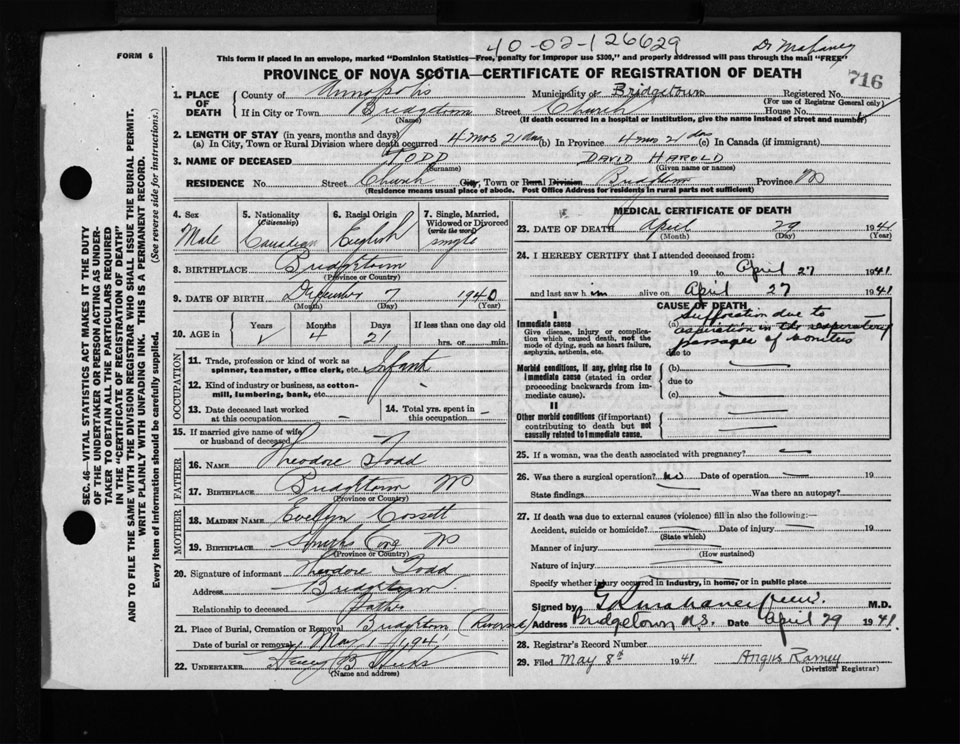 FORM 6
40-02-126629
Dr Mahaney
This form if placed in an envelope, marked "Dominion Statistics—Free, penalty for improper use $300," and properly addressed will pass through the mail "FREE"
PROVINCE OF NOVA SCOTIA—CERTIFICATE OF REGISTRATION OF DEATH
716
1. PLACE OF DEATH
County of Annapolis Municipality of Bridgetown Registered No.
(For use of Registrar General only)
If in City or Town Bridgetown Street Church House No.
(Name) (If death occurred in a hospital or institution, give the name instead of street and number)
2. LENGTH OF STAY (in years, months and days)
(a) In City, Town or Rural Division where death occurred 4 mos 21 das (b) In Province 4 mos 21 das (c) In Canada (if immigrant)
3. NAME OF DECEASED TODD DAVID HAROLD
(Surname) (Given name or names)
RESIDENCE No. Street Church City, Town or Rural Division Bridgetown Province NS
(Residence means usual place of abode. Post Office Address for residents in rural parts not sufficient)
4. Sex Male
5. Nationality (Citizenship) Canadian
6. Racial Origin English
7. Single, Married, Widowed or Divorced (write the word) single
8. BIRTHPLACE Bridgetown
(Province or Country)
9. DATE OF BIRTH December 7 1940
(Month) (Day) (Year)
10. AGE in Years Months 4 Days 21 If less than one day old
hrs. or min.
OCCUPATION
11. Trade, profession or kind of work as spinner, teamster, office clerk, etc. Infant
12. Kind of industry or business, as cotton-mill, lumbering, bank, etc.
13. Date deceased last worked at this occupation -
14. Total yrs. spent in this occupation -
15. If married give name of wife or husband of deceased
FATHER
16. NAME Theodore Todd
17. BIRTHPLACE Bridgetown NS
(Province or Country)
MOTHER
18. MAIDEN NAME Evelyn Cossett
19. BIRTHPLACE Smiths Cove NS
(Province or Country)
20. Signature of informant Theodore Todd
Address Bridgetown
Relationship to deceased Father
21. Place of Burial, Cremation or Removal Bridgetown (Riverside)
Date of burial or removal May 1 1941
22. UNDERTAKER B
(Name and address)
MEDICAL CERTIFICATE OF DEATH
23. DATE OF DEATH April 29 1941
(Month) (Day) (Year)
24. I HEREBY CERTIFY that I attended deceased from:
19 to April 27 1941
and last saw h im alive on April 27 1941
CAUSE OF DEATH
I
Immediate cause
Give disease, injury or complication which caused death, not the mode of dying, such as heart failure, asphyxia, asthenia, etc.
(a) Suffocation due to aspiration in the respiratory passages of vomitus
due to
Morbid conditions, if any, giving rise to immediate cause (stated in order proceeding backwards from immediate cause).
(b)
due to
(c)
II
Other morbid conditions (if important) contributing to death but not causally related to immediate cause.
25. If a woman, was the death associated with pregnancy?
26. Was there a surgical operation? no Date of operation 19
State findings Was there an autopsy?
27. If death was due to external causes (violence) fill in also the following:—
Accident, suicide or homicide? Date of injury 19
(State which)
Manner of injury
(How sustained)
Nature of injury
Specify whether injury occurred in industry, in home, or in public place
Signed by M.D.
Address Bridgetown N.S. Date April 29 1941.
28. Registrar's Record Number
29. Filed May 8th 1941 Angus Ramey
(Division Registrar)
SEC. 46—VITAL STATISTICS ACT MAKES IT THE DUTY
OF THE UNDERTAKER OR PERSON ACTING AS UNDER-
TAKER TO OBTAIN ALL THE PARTICULARS REQUIRED
IN THE "CERTIFICATE OF REGISTRATION OF DEATH"
AND TO FILE THE SAME WITH THE DIVISION REGISTRAR WHO SHALL ISSUE THE BURIAL PERMIT.
WRITE PLAINLY WITH UNFADING INK. THIS IS A PERMANENT RECORD.
Every item of information should be carefully supplied. (See reverse side for instructions.)